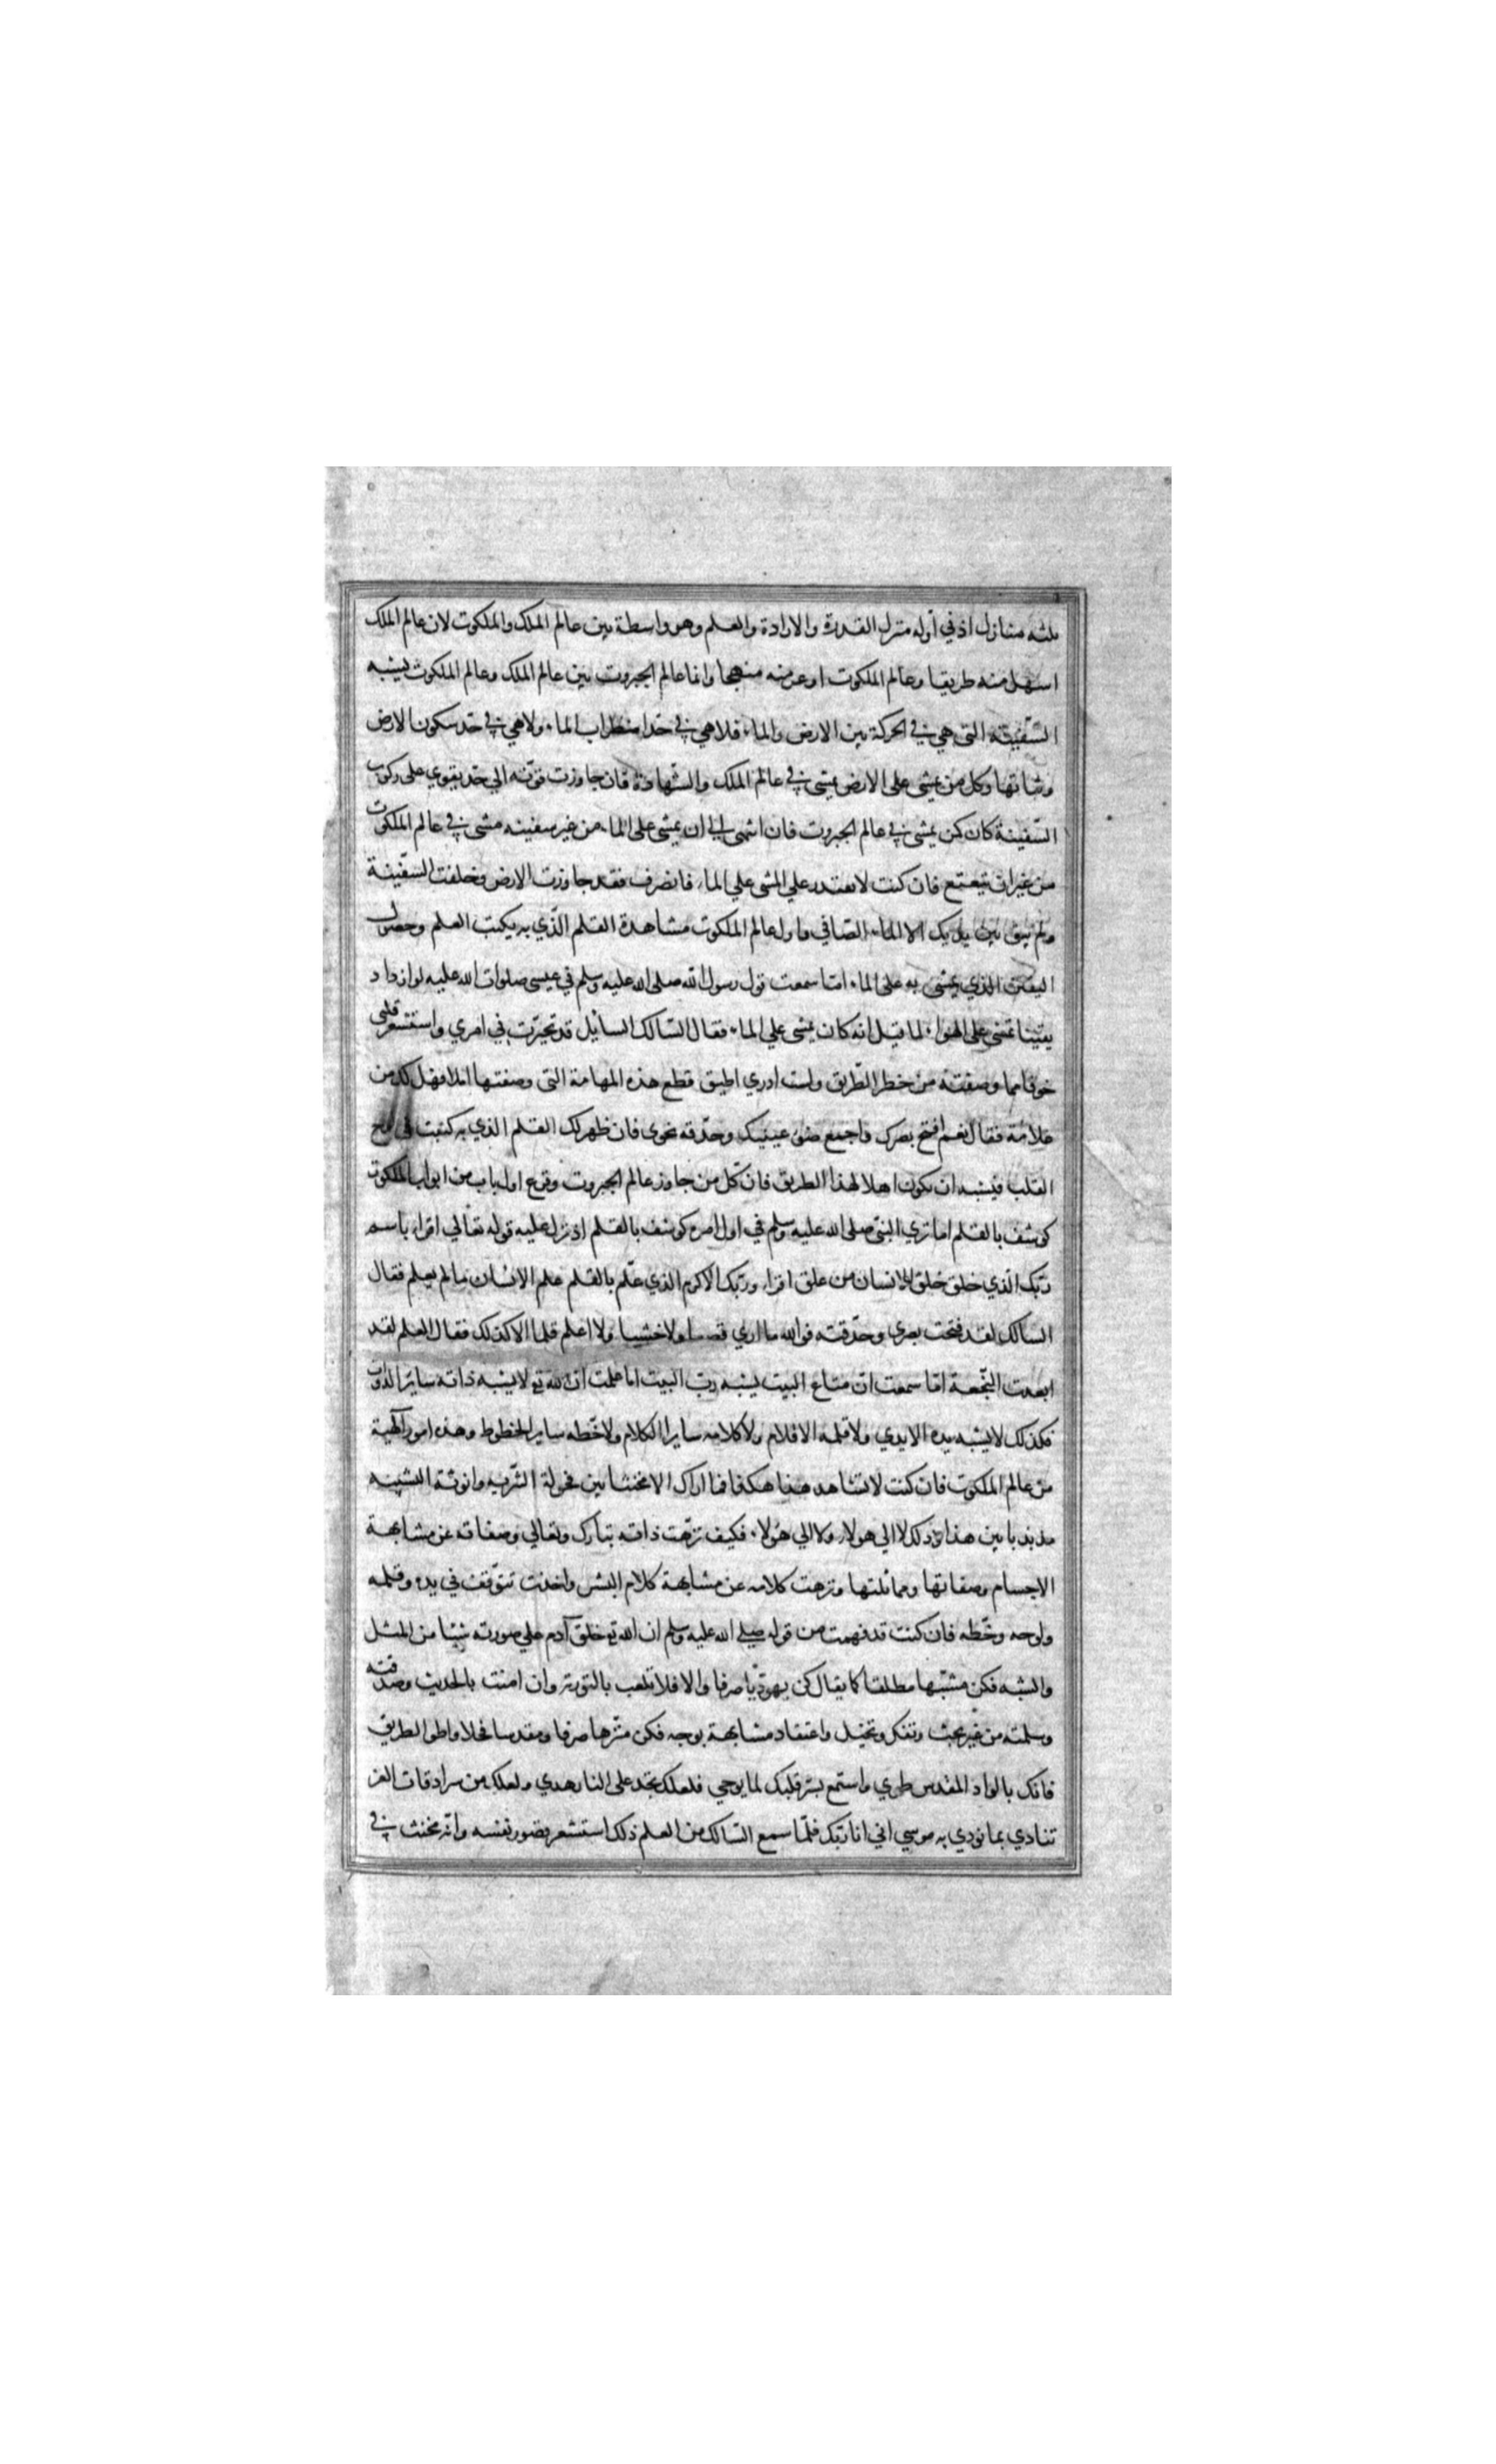 ثلثه منازل اذ في أوله منزل القدرة والارادة والعلم وهو واسطة بين عالم الملك والملكوت لان عالم الملك
اسهل منه طريقا وعالم الملكوت اوعر منه منهجا وانما عالم الجبروت بين عالم الملك وعالم الملكوت يشبه
السّفينة التي هي في الحركة بين الارض والماء فلا هي في حد اضطراب الماء ولا هي في حد سكون الارض
وثباتها وكل من يمشي على الارض يمشي في عالم الملك والشّهادة فان جاوزت قوّته الي حد يقوي على ركوب
السّفينة كان كمن يمشي في عالم الجبروت فان انتهى الي ان يمشي على الماء من غير سفينه مشى في عالم الملكوت
من غير ان يتعتع فان كنت لا تقتدر علي المشي علي الماء فانصرف فقد جاوزت الارض وخلفت السّفينة
ولم يبق بين يديك الا الماء الصّافي واول عالم الملكوت مشاهدة القلم الّذي به يكتب العلم وحصول
اليقين الذي يمشي به على الماء اما سمعت قول رسول الله صلى الله عليه وسلم في عيسى صلوات الله عليه لو ازداد
يقينا لمشي على الهواء لما قيل انه كان يمشي علي الماء فقال السّالك السائل قد تحيّرت في امري واستشعر قلبي
خوفا مما وصفته من خطر الطّريق ولست ادري اطيق قطع هذه المهامة التي وصفتها ام لا فهل لك من
علامة فقال نعم افتح بصرك واجمع ضوء عينيك وحدّقه نحوي فان ظهر لك القلم الذي به كتبت في لوح
القلب فيشبه ان يكون اهلا لهذا الطريق فان كل من جاوز عالم الجبروت وقرع اول باب من ابواب الملكوت
كوشف بالقلم اما تري النبيّ صلى الله عليه وسلم في اول امره كوشف بالقلم اذ نزل عليه قوله تعالي اقراء باسم
ربّك الّذي خلق خلق الانسان من علق اقراء وربّك الاكرم الذي علّم بالقلم علم الانسان ما لم يعلم فقال
السالك لقد فتحت بصري وحدّقته فوالله ما اري قصبا ولا خشبا ولا اعلم قلما الا كذلك فقال العلم لقد
ابعدت النّجعة اما سمعت ان متاع البيت يشبه ربّ البيت اما علمت ان الله تع لا يشبه ذاته ساير الذوات
فكذلك لا يشبه يده الايدي ولا قلمه الاقلام ولا كلامه ساير الكلام ولا خطّه ساير الخطوط وهذه امور آلهية
من عالم الملكوت فان كنت لا تشاهد هذا هكذا فما اراك الا مخنثا بين فحولة التّنزيه وانوثة التشبيه
مذبذبا بين هذا وذلك لا الي هولاء ولا الي هولاء فكيف نزّهت ذاته تبارك وتعالي وصفاته عن مشابهة
الاجسام وصفاتها ومماثلتها ونزهت كلامه عن مشابهة كلام البشر واخذت تتوّقف في يده وقلمه
ولوحه وخّطه فان كنت قد فهمت من قوله صلى الله عليه وسلم ان الله تع خلق آدم علي صورته شيئا من المثل
والشبه فكن مشبّها مطلقا كما يقال كن يهوديّا صرفا والا فلا تلعب بالتورية وان امنت بالحديث وصدّقته
وسلمته من غير بحث وتفكر وتخيل واعتقاد مشابهة بوجه فكن منّزها صرفا ومقدسا فحلا واطو الطريق
فانك بالواد المقدس طوي واستمع بسّر قلبك لما يوحي فلعلك تجد على النار هدي ولعلك من سرادقات العز
تنادي بما نودي به موسي اني انا ربّك فلّما سمع السّالك من العلم ذلك استشعر قصور نفسه وانّه مخنث في